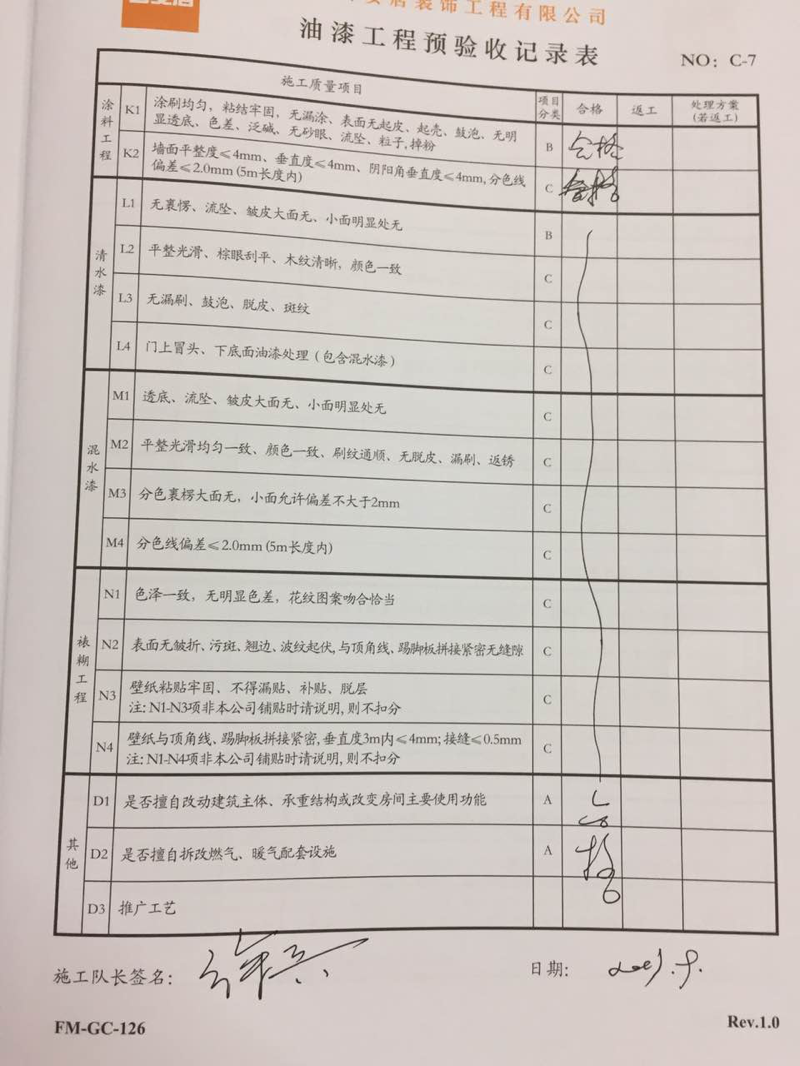 安居装饰工程有限公司
油漆工程预验收记录表
NO: C-7
施工质量项目 项目分类 合格 返工 处理方案(若返工)
涂料工程
K1 涂刷均匀，粘结牢固，无漏涂、表面无起皮、起壳、鼓泡、无明
显透底、色差、泛碱、无砂眼、流坠、粒子,掉粉 B 合格
K2 墙面平整度≤4mm、垂直度≤4mm、阴阳角垂直度≤4mm,分色线
偏差≤2.0mm (5m长度内) C 合格
清水漆
L1 无裹愣、流坠、皱皮大面无、小面明显处无 B
L2 平整光滑、棕眼刮平、木纹清晰，颜色一致 C
L3 无漏刷、鼓泡、脱皮、斑纹 C
L4 门上冒头、下底面油漆处理（包含混水漆） C
混水漆
M1 透底、流坠、皱皮大面无、小面明显处无 C
M2 平整光滑均匀一致、颜色一致、刷纹通顺、无脱皮、漏刷、返锈 C
M3 分色裹楞大面无，小面允许偏差不大于2mm C
M4 分色线偏差≤2.0mm (5m长度内) C
裱糊工程
N1 色泽一致，无明显色差，花纹图案吻合恰当 C
N2 表面无皱折、污斑、翘边、波纹起伏,与顶角线、踢脚板拼接紧密无缝隙 C
N3 壁纸粘贴牢固、不得漏贴、补贴、脱层
注: N1-N3项非本公司铺贴时请说明,则不扣分 C
N4 壁纸与顶角线、踢脚板拼接紧密,垂直度3m内≤4mm; 接缝≤0.5mm
注: N1-N4项非本公司铺贴时请说明,则不扣分 C
其他
D1 是否擅自改动建筑主体、承重结构或改变房间主要使用功能 A 合
D2 是否擅自拆改燃气、暖气配套设施 A 格
D3 推广工艺
施工队长签名:
日期:
FM-GC-126
Rev.1.0